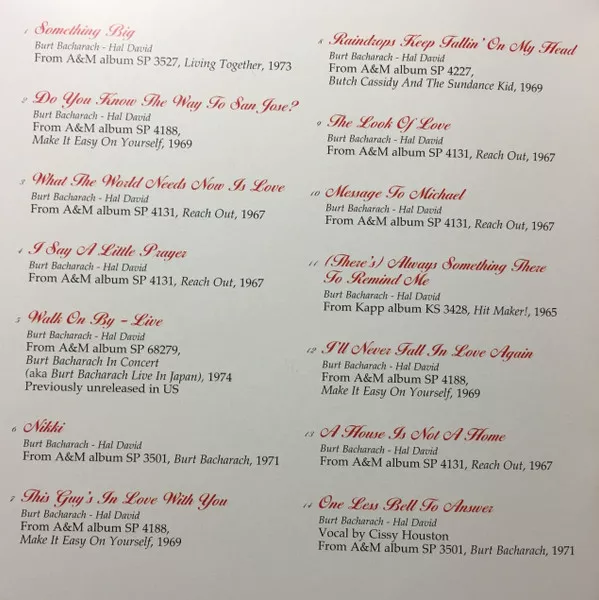 1 Something Big
Burt Bacharach - Hal David
From A&M album SP 3527, Living Together, 1973
2 Do You Know The Way To San Jose?
Burt Bacharach - Hal David
From A&M album SP 4188,
Make It Easy On Yourself, 1969
3 What The World Needs Now Is Love
Burt Bacharach - Hal David
From A&M album SP 4131, Reach Out, 1967
4 I Say A Little Prayer
Burt Bacharach - Hal David
From A&M album SP 4131, Reach Out, 1967
5 Walk On By – Live
Burt Bacharach - Hal David
From A&M album SP 68279,
Burt Bacharach In Concert
(aka Burt Bacharach Live In Japan), 1974
Previously unreleased in US
6 Nikki
Burt Bacharach - Hal David
From A&M album SP 3501, Burt Bacharach, 1971
7 This Guy's In Love With You
Burt Bacharach - Hal David
From A&M album SP 4188,
Make It Easy On Yourself, 1969
8 Raindrops Keep Fallin' On My Head
Burt Bacharach - Hal David
From A&M album SP 4227,
Butch Cassidy And The Sundance Kid, 1969
9 The Look Of Love
Burt Bacharach - Hal David
From A&M album SP 4131, Reach Out, 1967
10 Message To Michael
Burt Bacharach - Hal David
From A&M album SP 4131, Reach Out, 1967
11 (There's) Always Something There
To Remind Me
Burt Bacharach - Hal David
From Kapp album KS 3428, Hit Maker!, 1965
12 I'll Never Fall In Love Again
Burt Bacharach - Hal David
From A&M album SP 4188,
Make It Easy On Yourself, 1969
13 A House Is Not A Home
Burt Bacharach - Hal David
From A&M album SP 4131, Reach Out, 1967
14 One Less Bell To Answer
Burt Bacharach - Hal David
Vocal by Cissy Houston
From A&M album SP 3501, Burt Bacharach, 1971